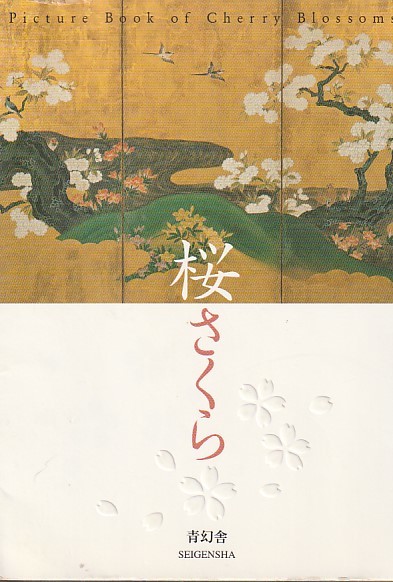 Picture Book of Cherry Blossoms
桜
さくら
青幻舎
SEIGENSHA